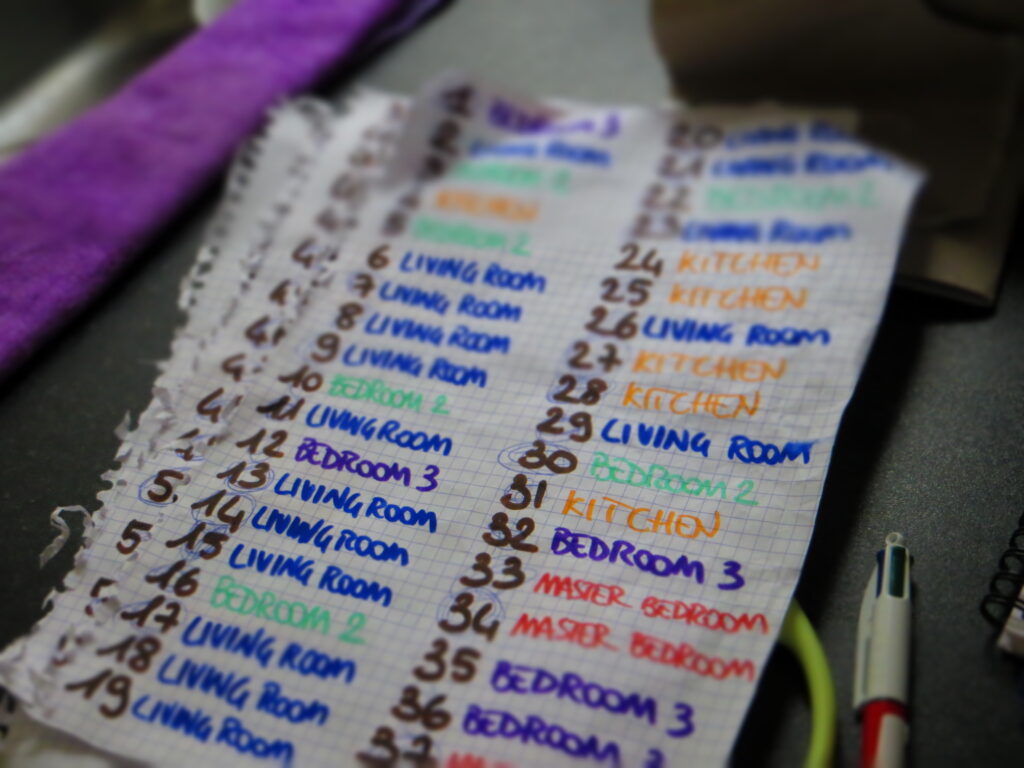 1 BEDROOM 3
2 LIVING ROOM
BEDROOM 2
KITCHEN
BEDROOM 2
6 LIVING ROOM
7 LIVING ROOM
8 LIVING ROOM
9 LIVING ROOM
10 BEDROOM 2
11 LIVING ROOM
12 BEDROOM 3
13 LIVING ROOM
14 LIVING ROOM
15 LIVING ROOM
16 BEDROOM 2
17 LIVING ROOM
18 LIVING ROOM
19 LIVING ROOM
20 LIVING
21 LIVING ROOM
22 BEDROOM 2
23 LIVING ROOM
24 KITCHEN
25 KITCHEN
26 LIVING ROOM
27 KITCHEN
28 KITCHEN
29 LIVING ROOM
30 BEDROOM 2
31 KITCHEN
32 BEDROOM 3
33 MASTER BEDROOM
34 MASTER BEDROOM
35 BEDROOM 3
36 BEDROOM
37